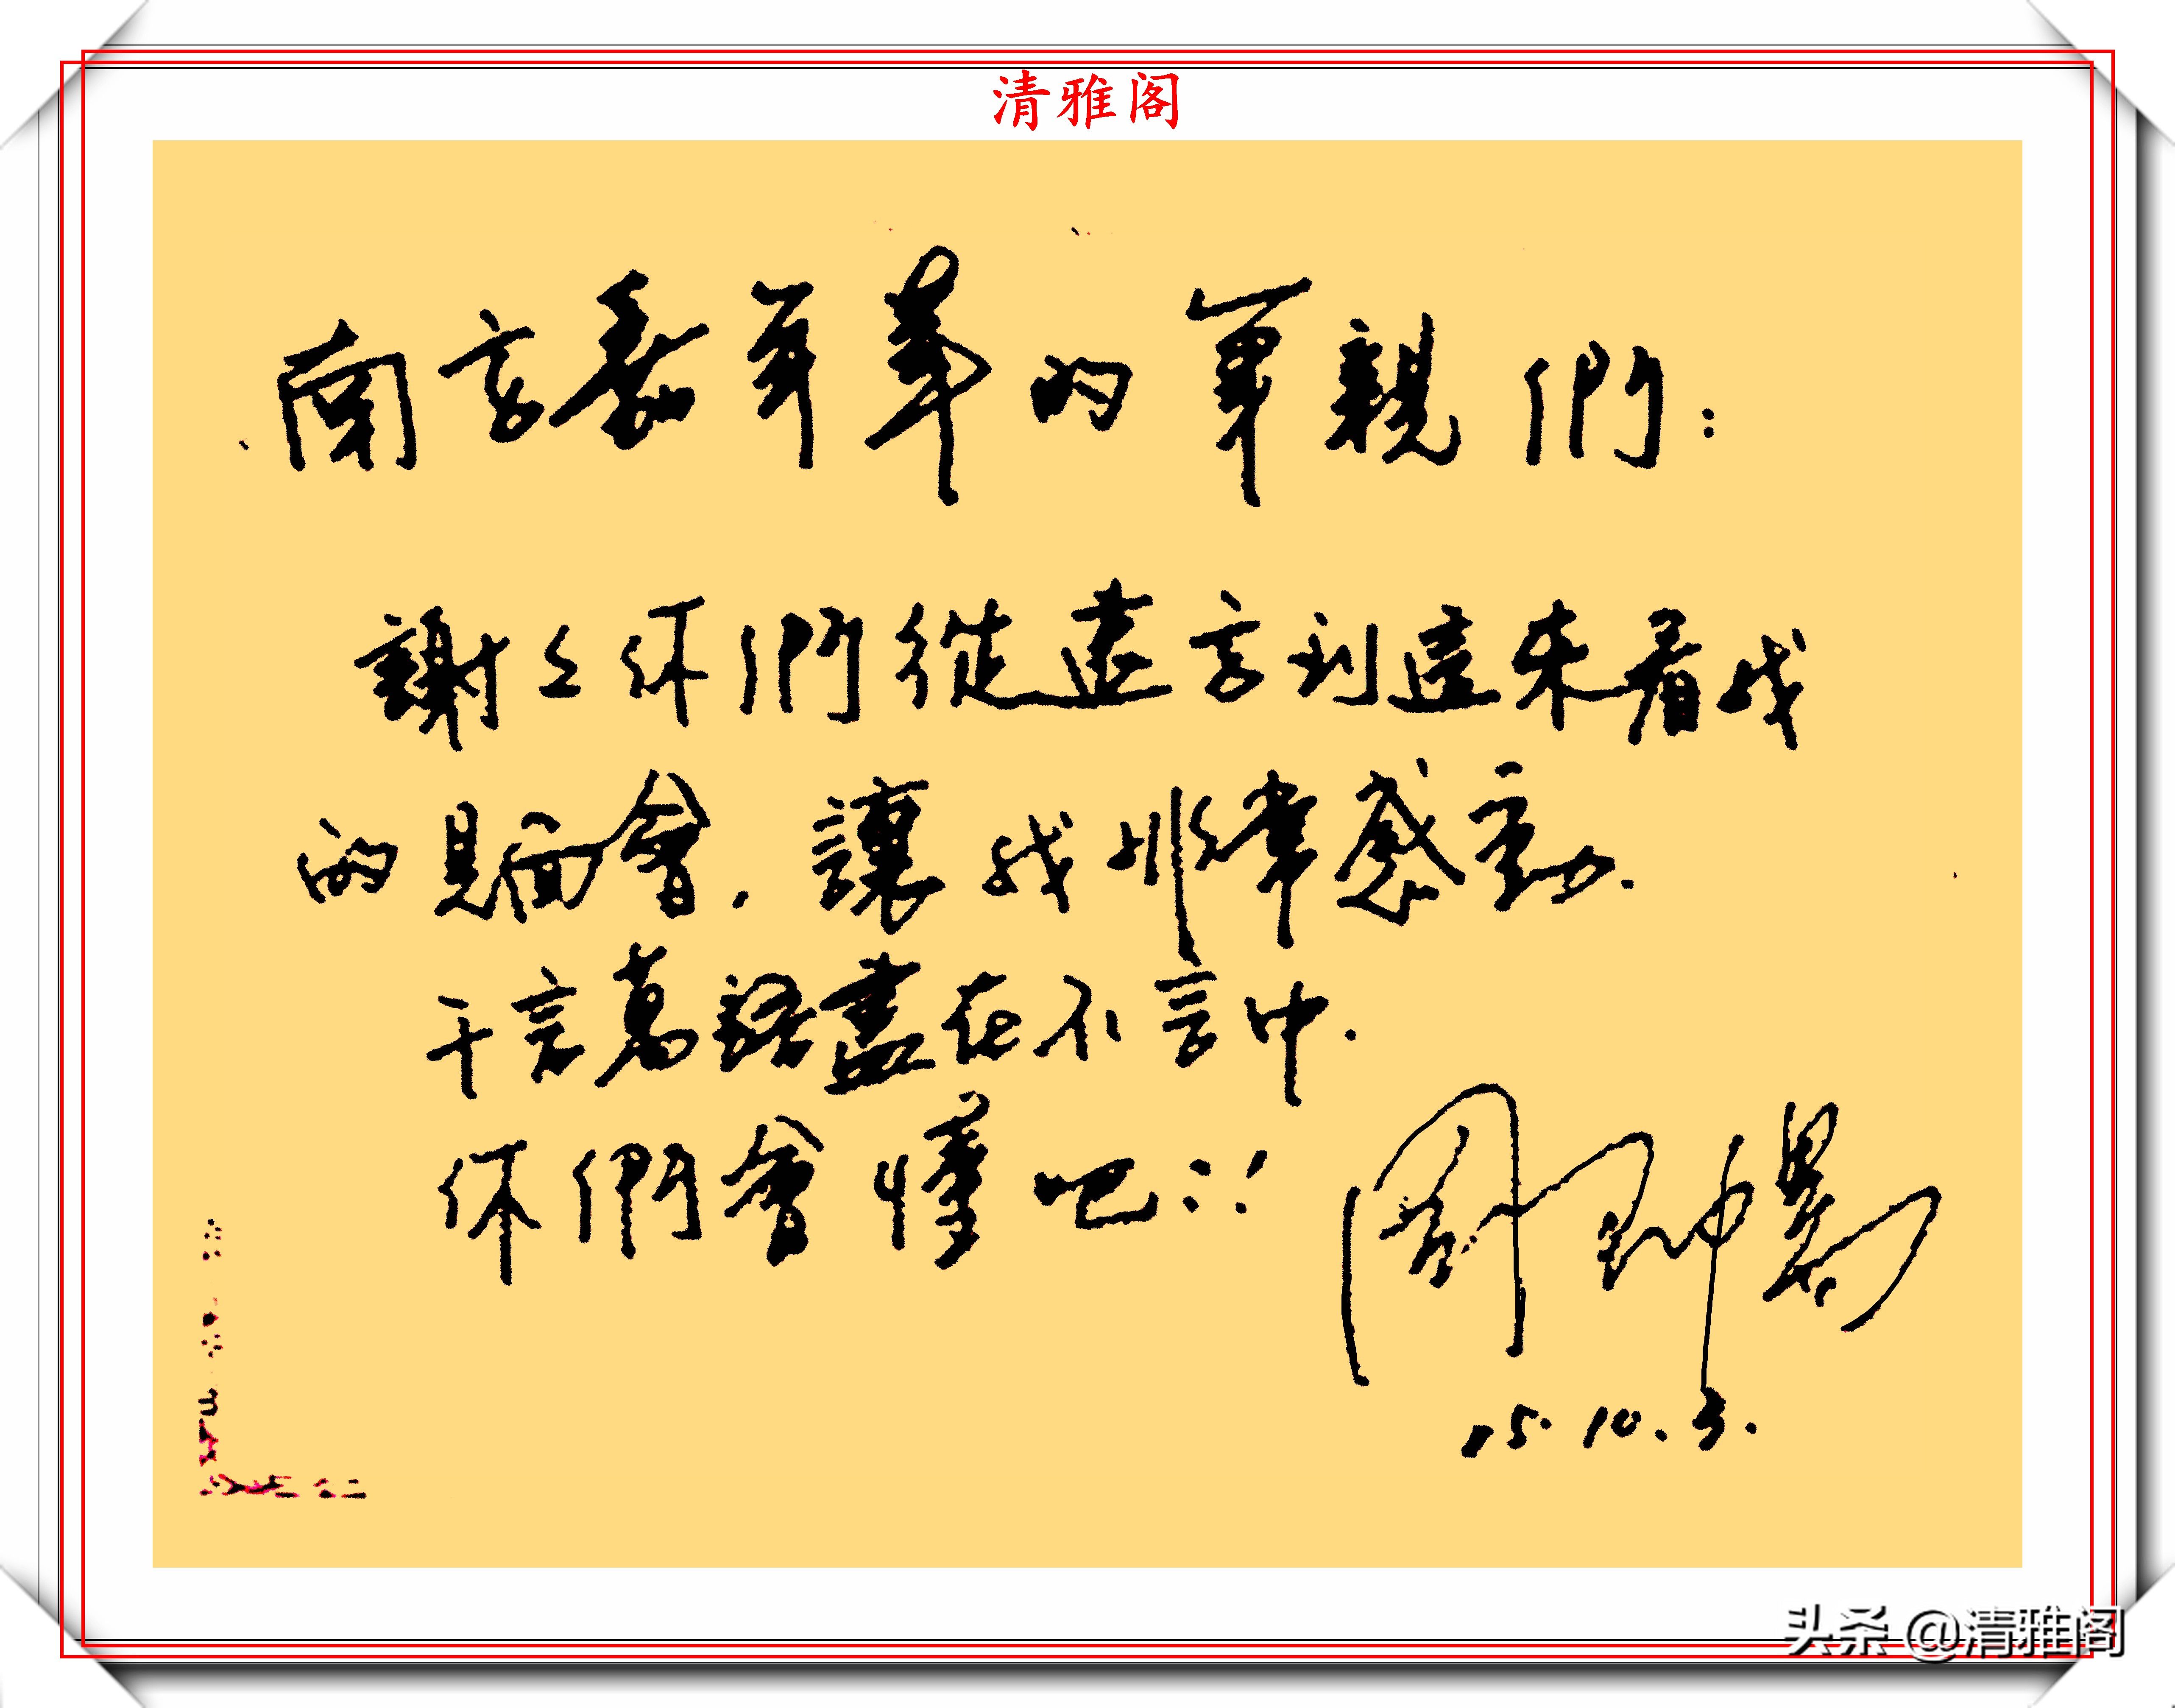 清雅阁
的軍親們：
謝謝你們從遠方到這來看我
的見面會，讓我非常感動.
千言萬語盡在不言中.
你們會懂吧！
15.10.3.
头条 @清雅阁